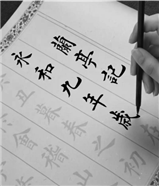 蘭亭記
永和九年歲
丑暮春之初
會稽山